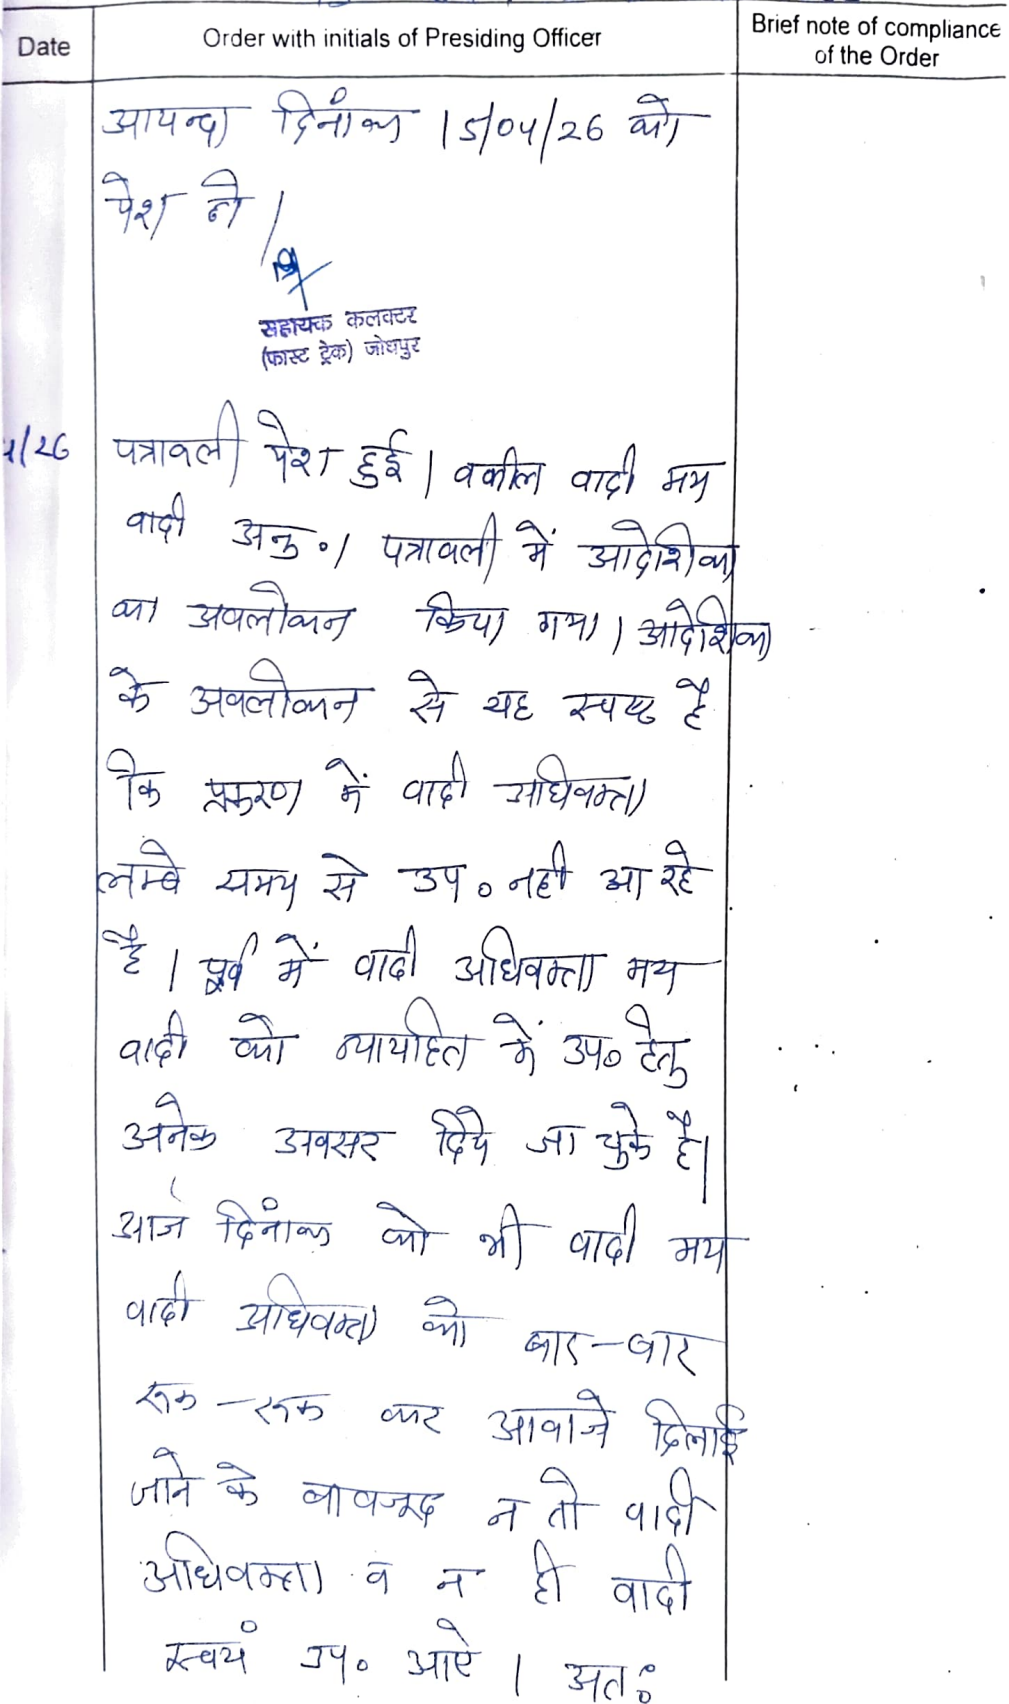 Date
Order with initials of Presiding Officer
Brief note of compliance
of the Order
आयन्दा दिनांक 15/04/26 को
पेश हो।
सहायक कलक्टर
(फास्ट ट्रेक) जोधपुर
4/26
पत्रावली पेश हुई। वकील वादी मय
वादी अनु०। पत्रावली में आदेशिका
का अवलोकन किया गया। आदेशिका
के अवलोकन से यह स्पष्ट है
कि प्रकरण में वादी अधिवक्ता
लम्बे समय से उप० नही आ रहे
है। पूर्व में वादी अधिवक्ता मय
वादी को न्यायहित में उप० हेतु
अनेक अवसर दिये जा चुके है।
आज दिनांक को भी वादी मय
वादी अधिवक्ता को बार-बार
रूक-रूक कर आवाजे दिलाई
जाने के बावजूद न तो वादी
अधिवक्ता व न ही वादी
स्वयं उप० आऐ। अतः